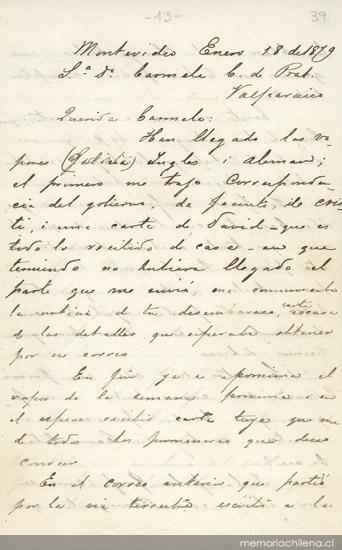 -13-
39
Montevideo Enero 18 de 1879
S.ª D.ª Carmela C. de Prat.
Valparaiso
Querida Carmela:
Han llegado los va-
pores (Galicia) Ingles i Aleman;
el primero me trajo corresponden-
cia del gobierno, de Jacinto, de
i una carta de David - que es
todo lo recibido de casa - en que
temiendo no hubiera llegado el
parte que me envió, me comunicaba
la noticia de tu desembarazo,
de los detalles que esperaba obtener
por su correo
En fin ya se aproxima el
vapor de la semana proxima i en
el espero recibir carta tuya que me
de todo los pormenores que deseo
conocer
En el correo anterior que partió
por la via terrestre escribí a la
memoriachilena.cl